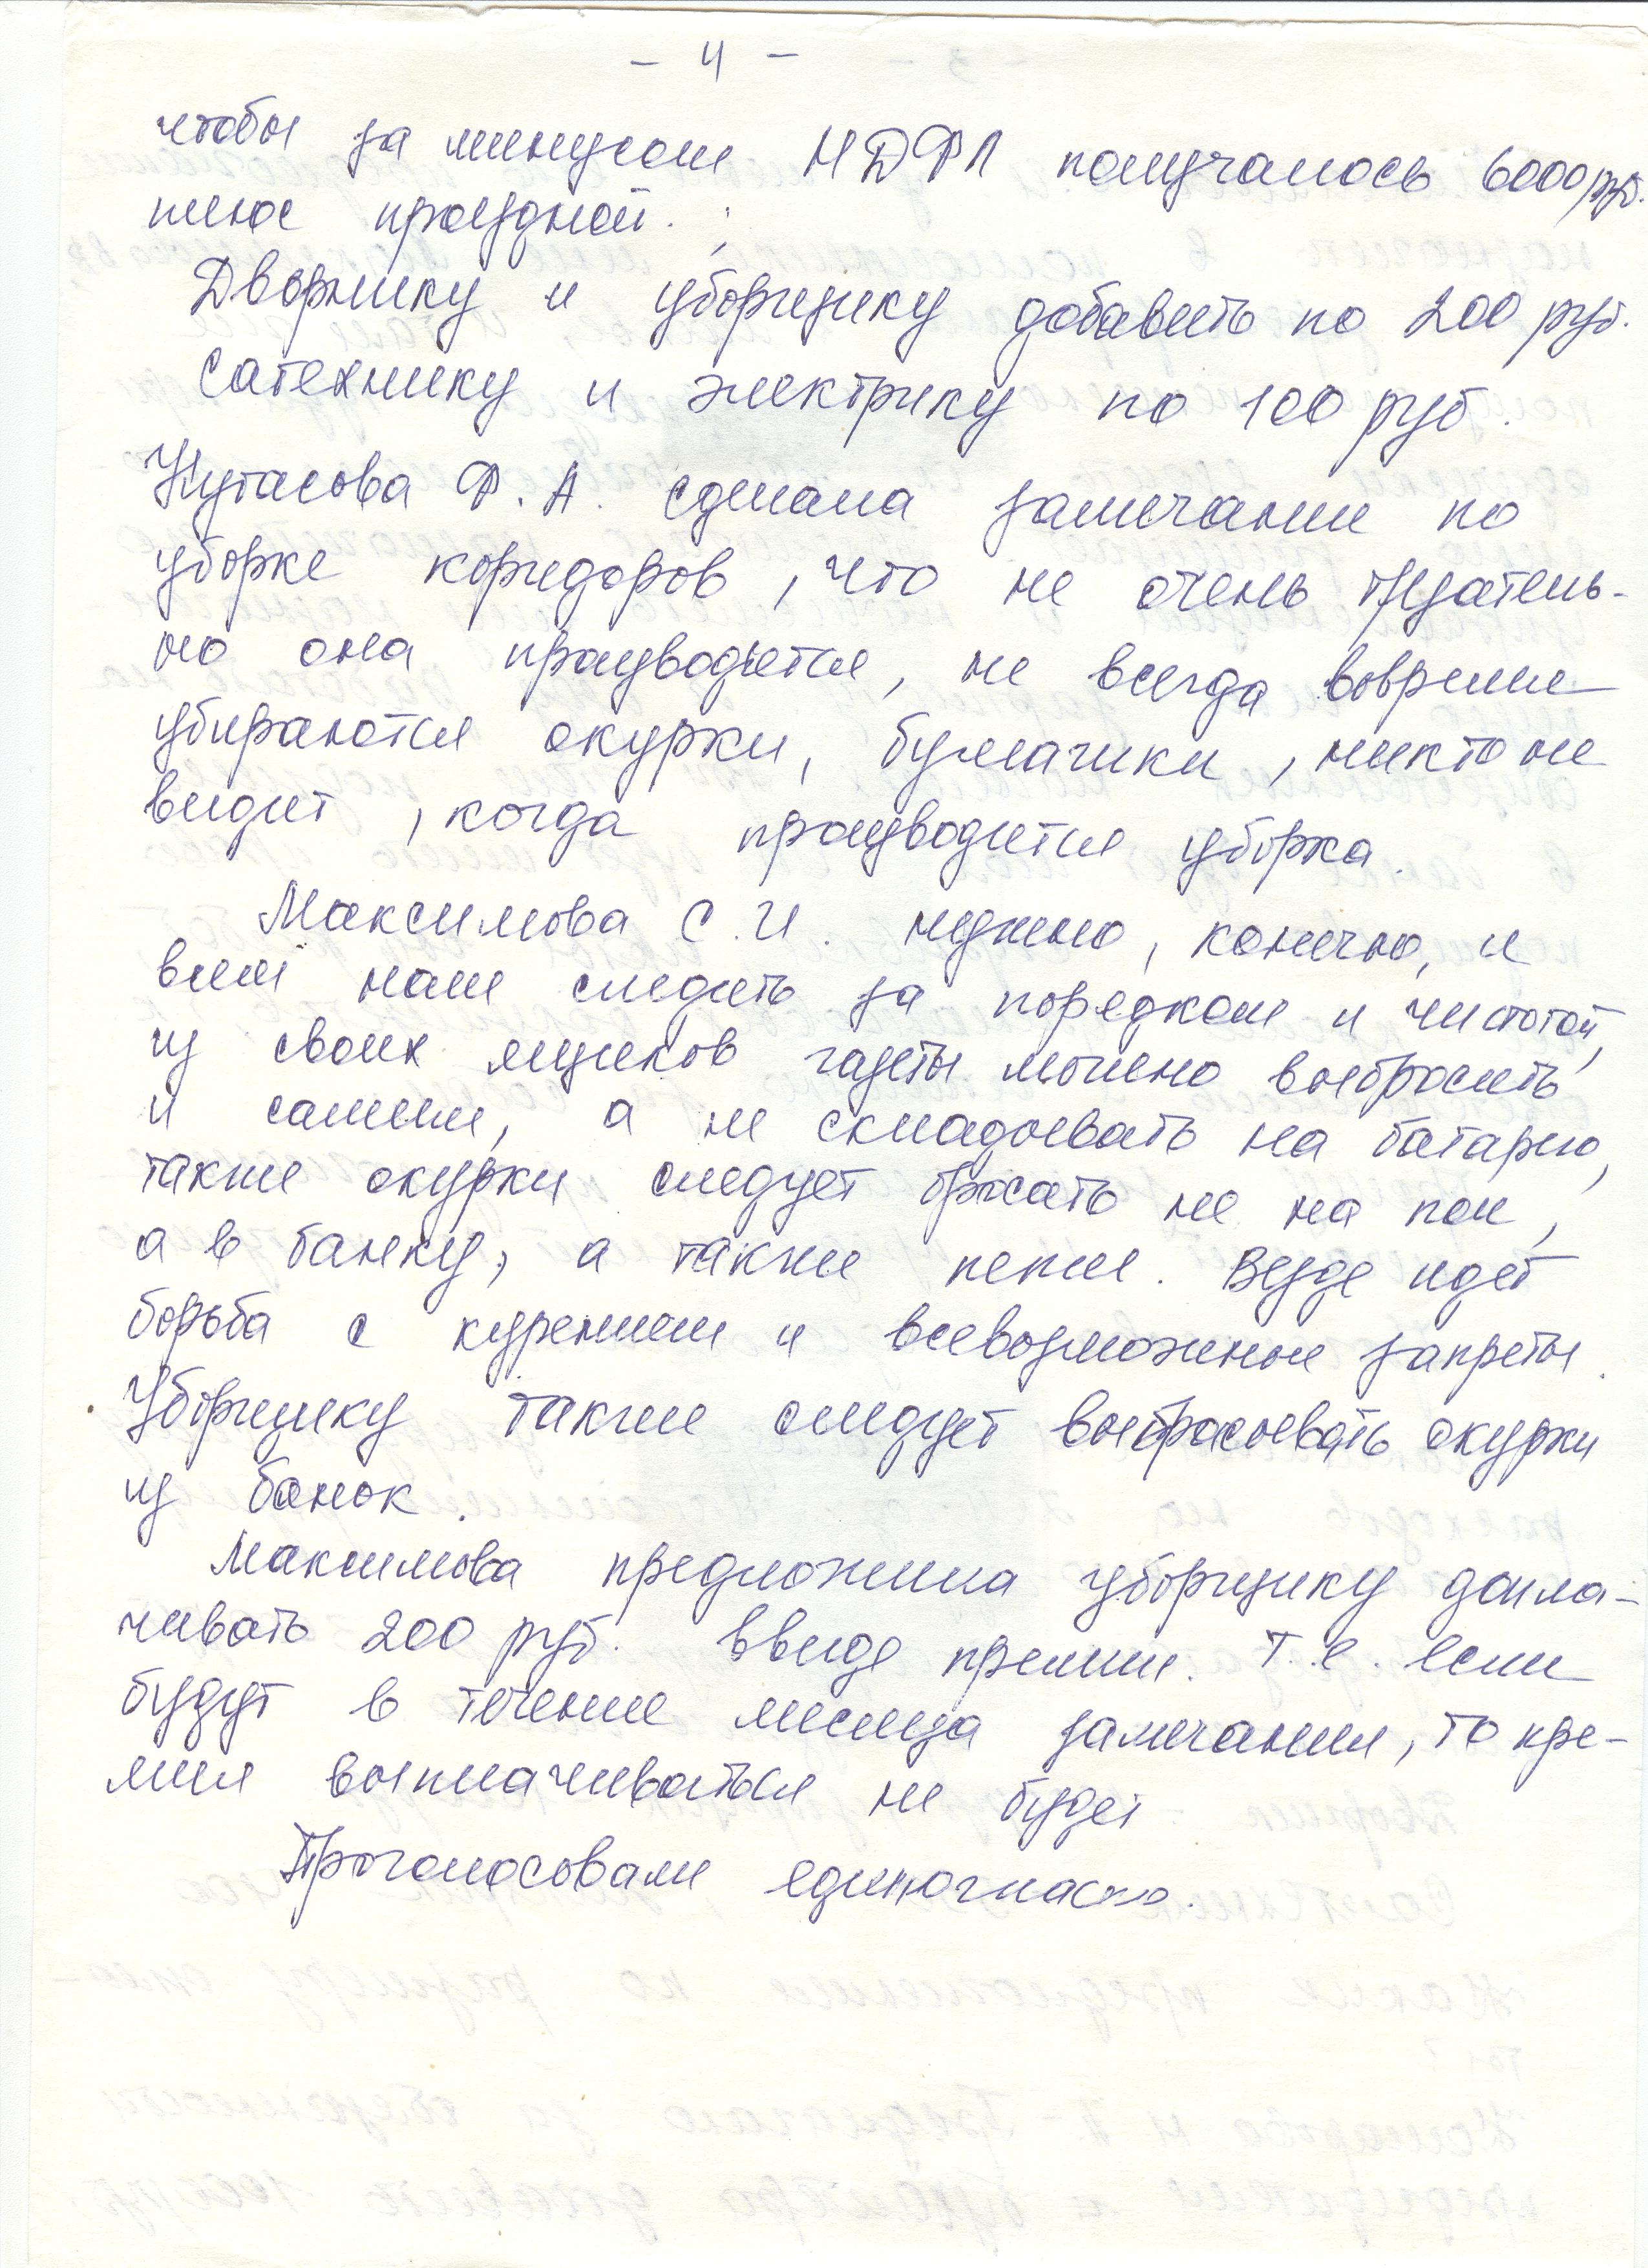 - 4 -
чтобы за минусом НДФЛ получалось 6000 руб.
плюс проездной.
Дворнику и уборщику добавить по 200 руб.
Сатехнику и электрику по 100 руб.
Кутасова Ф. А. сделала замечание по
уборке коридоров, что не очень тщатель-
но она производится, не всегда вовремя
убираются окурки, бумажки, никто не
видит, когда производится уборка.
Максимова С. И. нужно, конечно, и
всем нам следить за порядком и чистотой,
из своих ящиков газеты можно выбросить
и самим, а не складывать на батарею,
также окурки следует бросать не на пол,
а в банку, а также пепел. Везде идет
борьба с курением и всевозможные запреты.
Уборщику также следует выбрасывать окурки
из банок.
Максимова предложила уборщику допла-
чивать 200 руб. ввиде премии. Т. е. если
будут в течение месяца замечания, то пре-
мия выплачиваться не будет
Проголосовали единогласно.